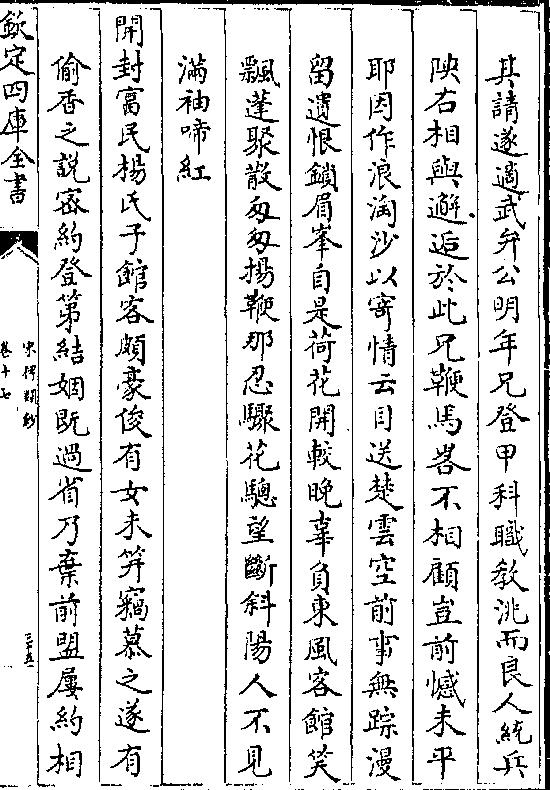 其請遂適武弁公明年兄登甲科職教洮而良人統兵
陜右相與邂逅於此兄鞭馬畧不相顧豈前憾未平
耶因作浪淘沙以寄情云目送楚雲空前事無踪漫
留遺恨鎖眉峯自是荷花開較晚辜負東風客館笑
飄蓬聚散匆匆揚鞭那忍驟花驄望斷斜陽人不見
滿袖啼紅
開封富民楊氏子館客頗豪俊有女未筓竊慕之遂有
偷香之說密約登第結姻既過省乃棄前盟屢約相
欽定四庫全書
宋稗類鈔
卷十七
三十五